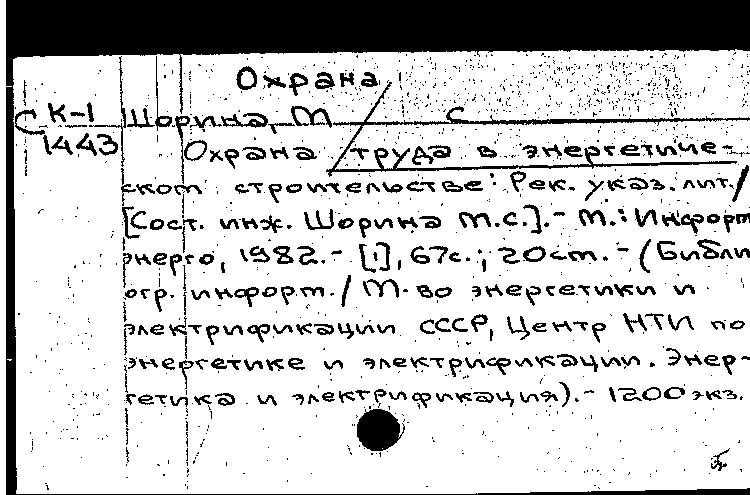 Охрана
С К-1 Шорина, М С
1443 Охрана труда в энергетиче-
ском строительстве: Рек. указ. лит./
[Сост. инж. Шорина М.С.].- М.: Информ
энерго, 1982.- [1], 67с.; 20см. - (Библи
огр. информ. / М-во энергетики и
электрификации СССР, Центр НТИ по
энергетике и электрификации. Энер-
гетика и электрификация).- 1200 экз.